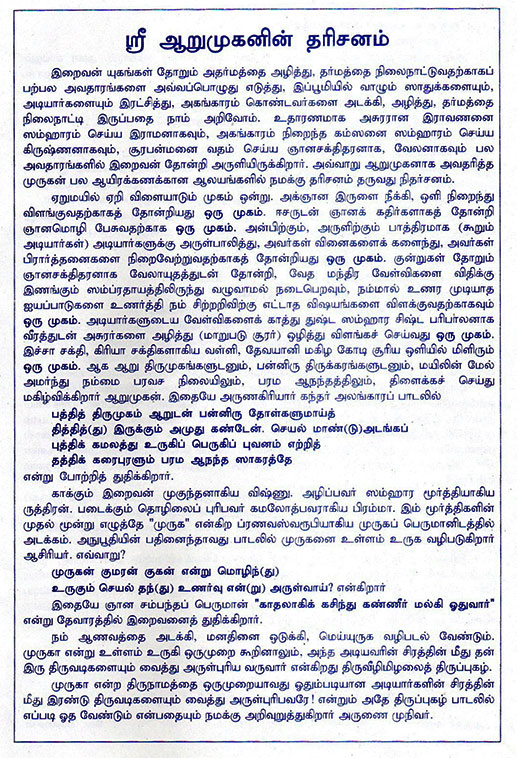 ஸ்ரீ ஆறுமுகனின் தரிசனம்
இறைவன் யுகங்கள் தோறும் அதர்மத்தை அழித்து, தர்மத்தை நிலைநாட்டுவதற்காகப்
பற்பல அவதாரங்களை அவ்வப்பொழுது எடுத்து, இப்பூமியில் வாழும் ஸாதுக்களையும்,
அடியார்களையும் இரட்சித்து, அகங்காரம் கொண்டவர்களை அடக்கி, அழித்து, தர்மத்தை
நிலைநாட்டி இருப்பதை நாம் அறிவோம். உதாரணமாக அசுரரான இராவணனை
ஸம்ஹாரம் செய்ய இராமனாகவும், அகங்காரம் நிறைந்த கம்ஸனை ஸம்ஹாரம் செய்ய
கிருஷ்ணனாகவும், சூரபன்மனை வதம் செய்ய ஞானசக்திதரனாக, வேலனாகவும் பல
அவதாரங்களில் இறைவன் தோன்றி அருளியிருக்கிறார். அவ்வாறு ஆறுமுகனாக அவதரித்த
முருகன் பல ஆயிரக்கணக்கான ஆலயங்களில் நமக்கு தரிசனம் தருவது நிதர்சனம்.
ஏறுமயில் ஏறி விளையாடும் முகம் ஒன்று. அக்ஞான இருளை நீக்கி, ஒளி நிறைந்து
விளங்குவதற்காகத் தோன்றியது ஒரு முகம். ஈசருடன் ஞானக் கதிர்களாகத் தோன்றி
ஞானமொழி பேசுவதற்காக ஒரு முகம். அன்பிற்கும், அருளிற்கும் பாத்திரமாக (கூறும்
அடியார்கள்) அடியார்களுக்கு அருள்பாலித்து, அவர்கள் வினைகளைக் களைந்து, அவர்கள்
பிரார்த்தனைகளை நிறைவேற்றுவதற்காகத் தோன்றியது ஒரு முகம். குன்றுகள் தோறும்
ஞானசக்திதரனாக வேலாயுதத்துடன் தோன்றி, வேத மந்திர வேள்விகளை விதிக்கு
இணங்கும் ஸம்ப்ரதாயத்திலிருந்து வழுவாமல் நடைபெறவும், நம்மால் உணர முடியாத
ஐயப்பாடுகளை உணர்த்தி நம் சிற்றறிவிற்கு எட்டாத விஷயங்களை விளக்குவதற்காகவும்
ஒரு முகம். அடியார்களுடைய வேள்விகளைக் காத்து துஷ்ட ஸம்ஹார சிஷ்ட பரிபாலனாக
வீரத்துடன் அசுரர்களை அழித்து (மாறுபடு சூரர்) ஒழித்து விளங்கச் செய்வது ஒரு முகம்.
இச்சா சக்தி, கிரியா சக்திகளாகிய வள்ளி, தேவயானி மகிழ கோடி சூரிய ஒளியில் மிளிரும்
ஒரு முகம். ஆக ஆறு திருமுகங்களுடனும், பன்னிரு திருக்கரங்களுடனும், மயிலின் மேல்
அமர்ந்து நம்மை பரவச நிலையிலும், பரம ஆநந்தத்திலும், திளைக்கச் செய்து
மகிழ்விக்கிறார் ஆறுமுகன். இதையே அருணகிரியார் கந்தர் அலங்காரப் பாடலில்
பத்தித் திருமுகம் ஆறுடன் பன்னிரு தோள்களுமாய்த்
தித்தித்(து) இருக்கும் அமுது கண்டேன். செயல் மாண்(டு)அடங்கப்
புத்திக் கமலத்து உருகிப் பெருகிப் புவனம் எற்றித்
தத்திக் கரைபுரளும் பரம ஆநந்த ஸாகரத்தே
என்று போற்றித் துதிக்கிறார்.
காக்கும் இறைவன் முகுந்தனாகிய விஷ்ணு. அழிப்பவர் ஸம்ஹார மூர்த்தியாகிய
ருத்திரன். படைக்கும் தொழிலைப் புரிபவர் கமலோத்பவராகிய பிரம்மா. இம் மூர்த்திகளின்
முதல் மூன்று எழுத்தே "முருக" என்கிற ப்ரணவஸ்வரூபியாகிய முருகப் பெருமானிடத்தில்
அடக்கம். அநுபூதியின் பதினைந்தாவது பாடலில் முருகனை உள்ளம் உருக வழிபடுகிறார்
ஆசிரியர். எவ்வாறு?
முருகன் குமரன் குகன் என்று மொழிந்(து)
உருகும் செயல் தந்(து) உணர்வு என்(று) அருள்வாய்? என்கிறார்
இதையே ஞான சம்பந்தப் பெருமான் "காதலாகிக் கசிந்து கண்ணீர் மல்கி ஓதுவார்"
என்று தேவாரத்தில் இறைவனைத் துதிக்கிறார்.
நம் ஆணவத்தை அடக்கி, மனதினை ஒடுக்கி, மெய்யுருக வழிபடல் வேண்டும்.
முருகா என்று உள்ளம் உருகி ஒருமுறை கூறினாலும், அந்த அடியவரின் சிரத்தின் மீது தன்
இரு திருவடிகளையும் வைத்து அருள்புரிய வருவார் என்கிறது திருவீழிமிழலைத் திருப்புகழ்.
முருகா என்ற திருநாமத்தை ஒருமுறையாவது ஓதும்படியான அடியார்களின் சிரத்தின்
மீது இரண்டு திருவடிகளையும் வைத்து அருள்புரிபவரே! என்றும் அதே திருப்புகழ் பாடலில்
எப்படி ஓத வேண்டும் என்பதையும் நமக்கு அறிவுறுத்துகிறார் அருணை முனிவர்.